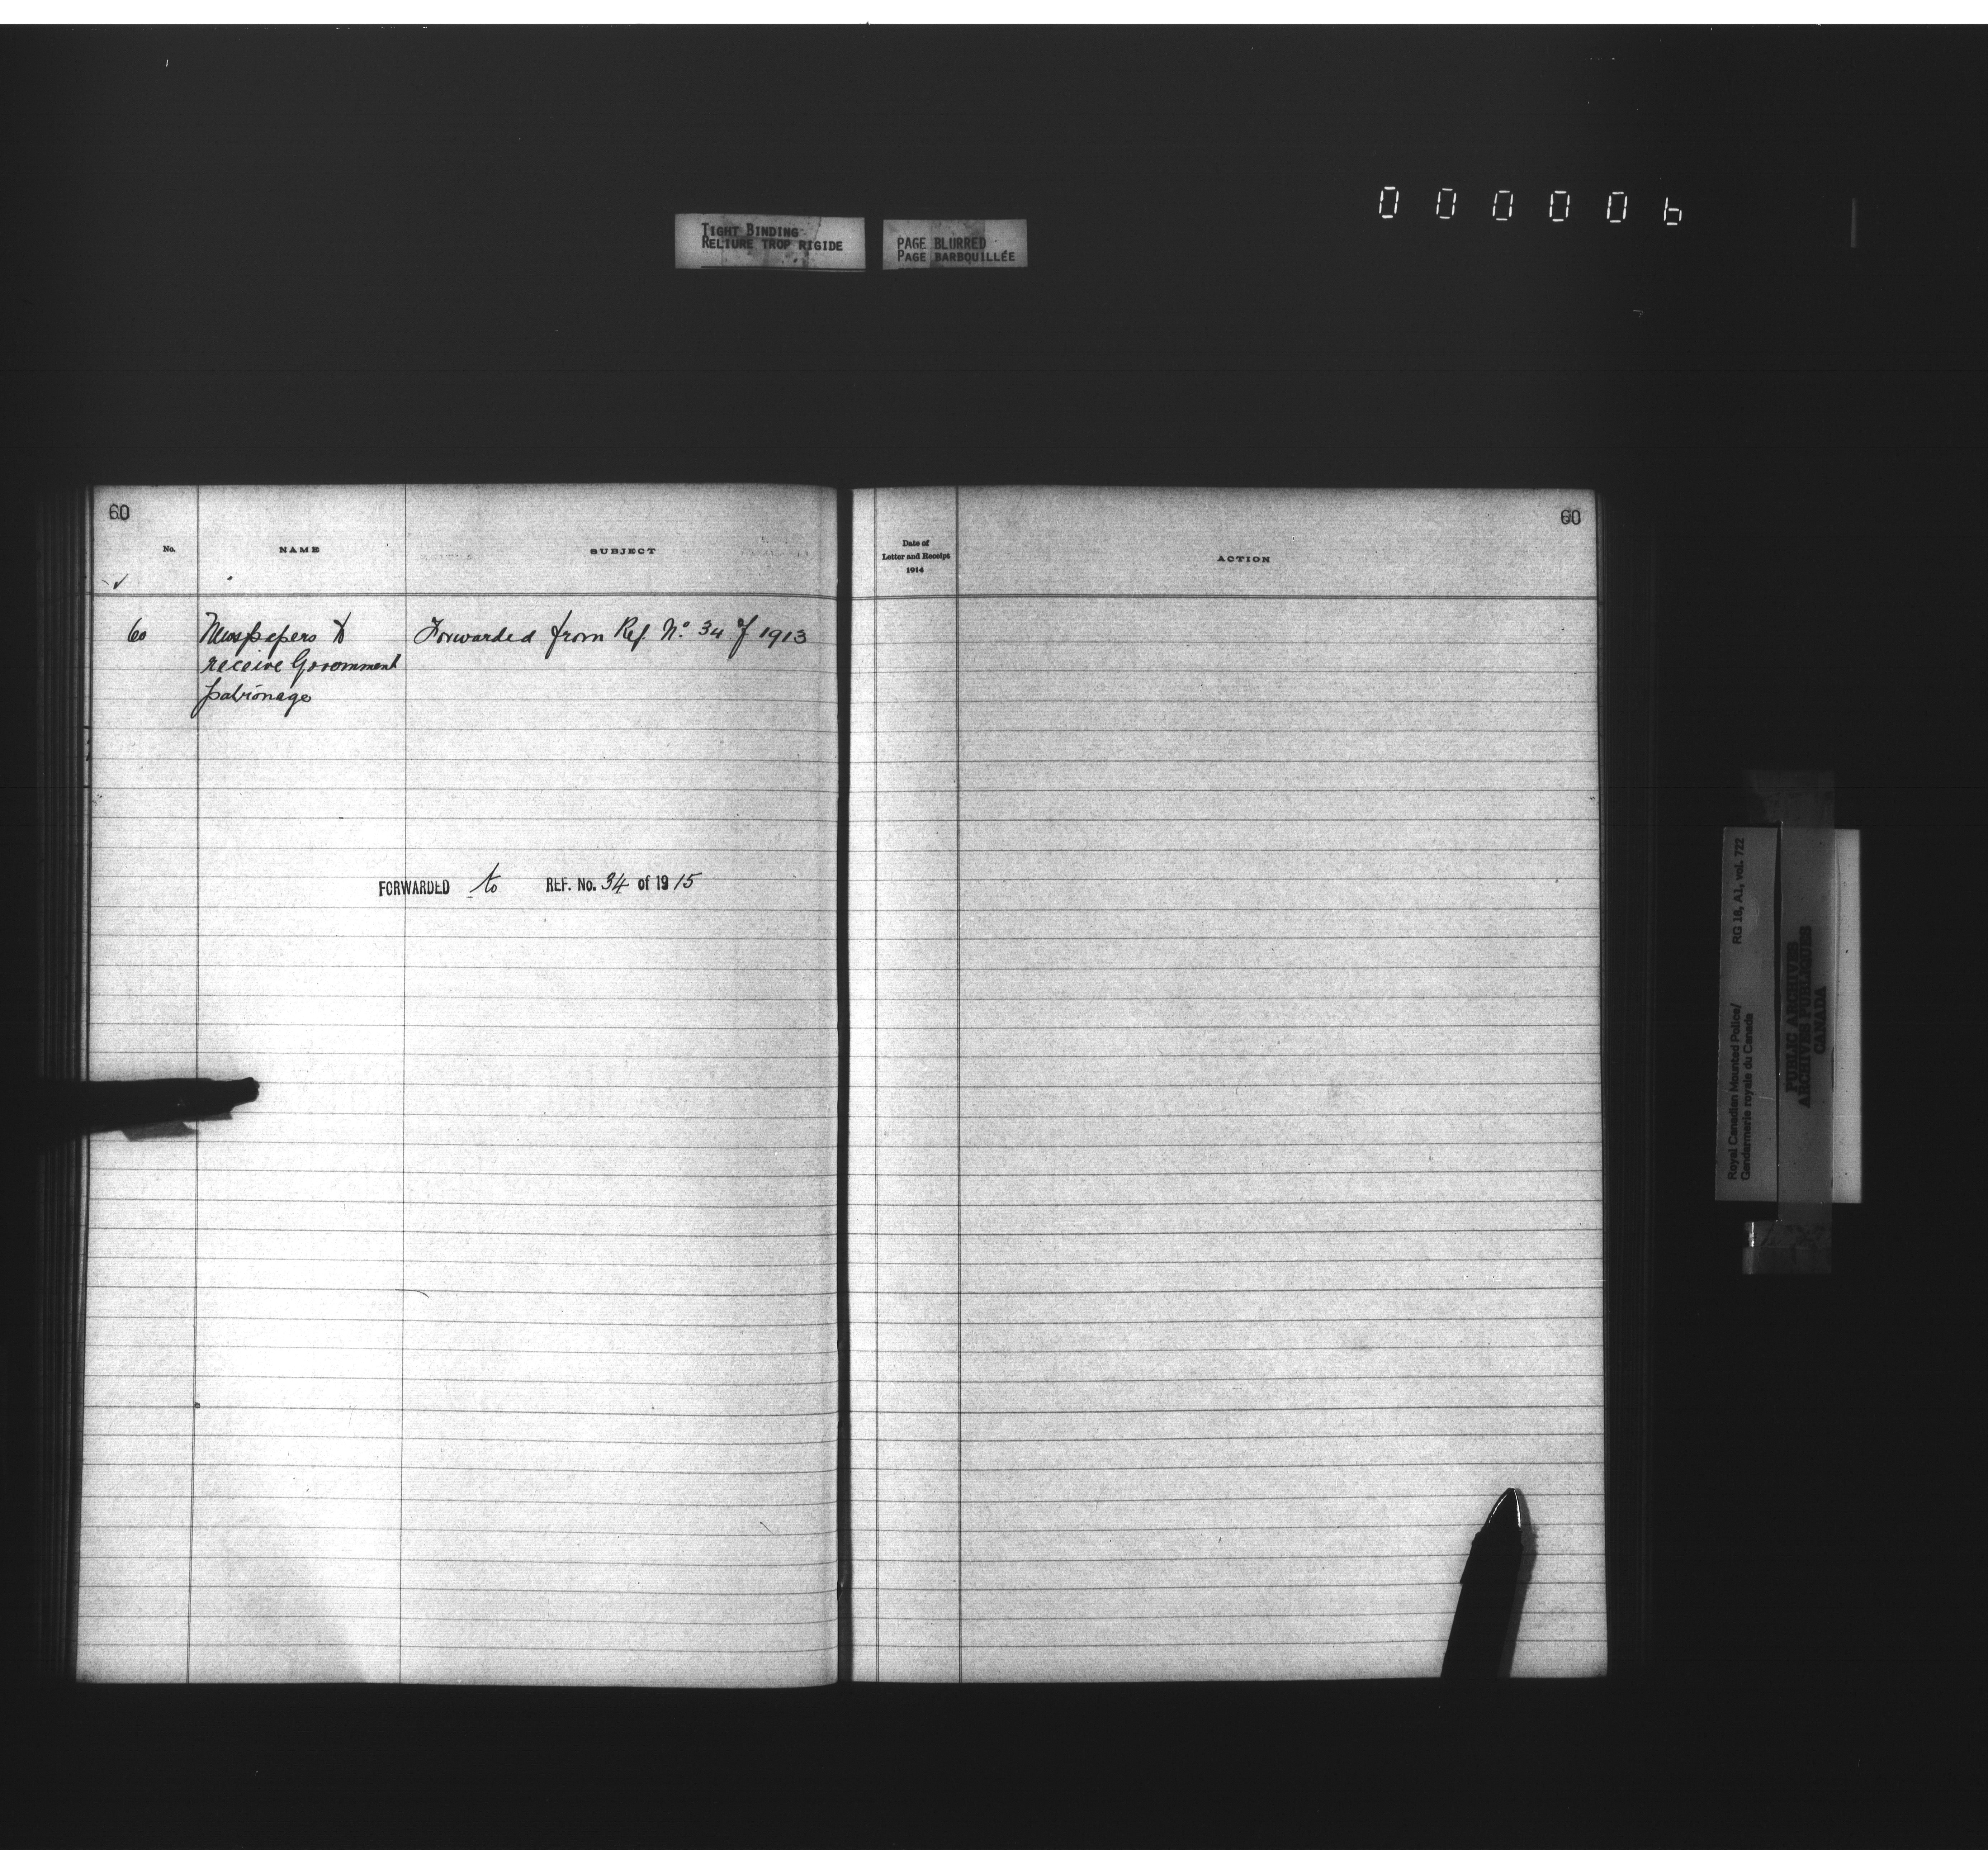 000006
TIGHT BINDING
RELIURE TROP RIGIDE
PAGE BLURRED
PAGE BARBOUILLÉE
60
No.
NAME
SUBJECT
60
Newspapers to
receive Government
patronage
Forwarded from Ref. No. 34 of 1913
FORWARDED to REF. No. 34 of 1915
60
Date of
Letter and Receipt
1914
ACTION
Royal Canadian Mounted Police/
Gendarmerie royale du Canada
RG 18, A1, vol. 722
PUBLIC ARCHIVES
ARCHIVES PUBLIQUES
CANADA